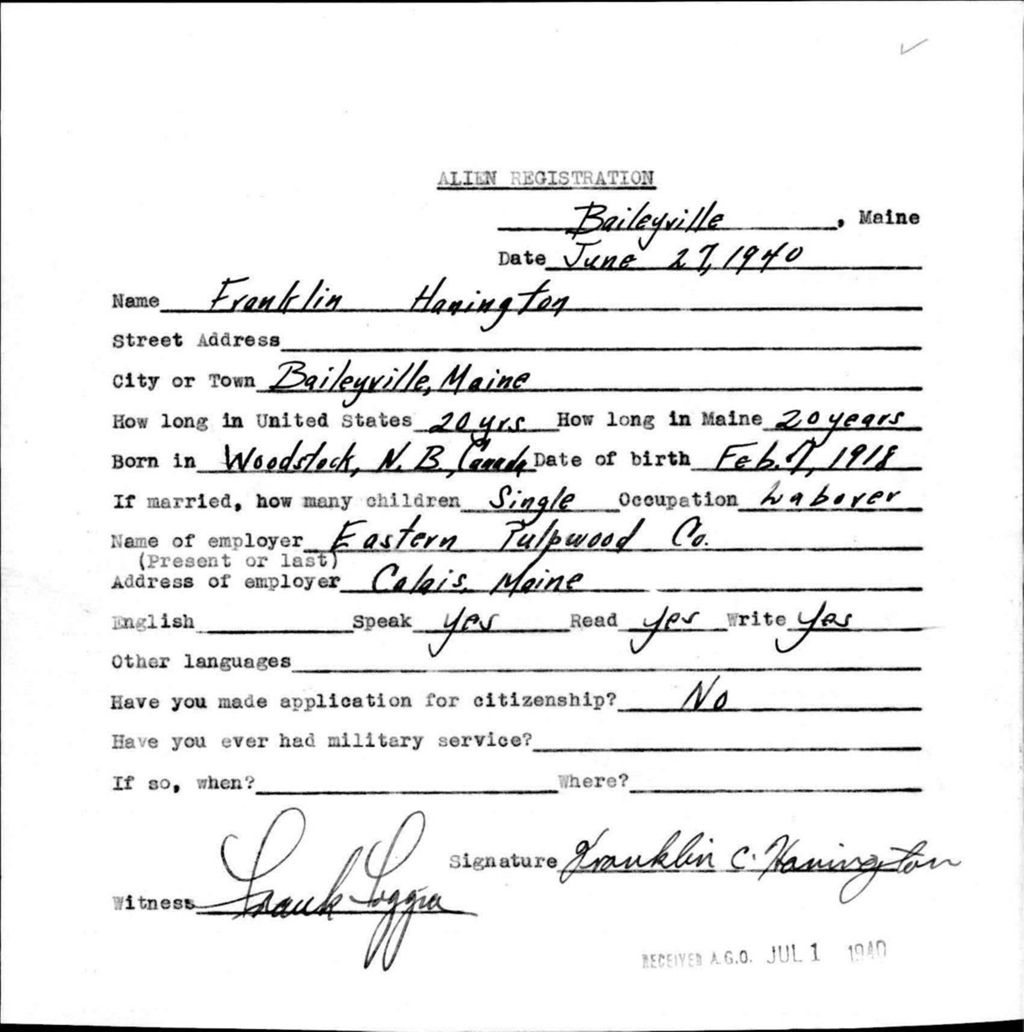 ALIEN REGISTRATION
Baileyville, Maine
Date June 27, 1940
Name Franklin Hanington
Street Address
City or Town Baileyville, Maine
How long in United States 20 yrs How long in Maine 20 years
Born in Woodstock, N. B. Canada Date of birth Feb. 17, 1918
If married, how many children Single Occupation Laborer
Name of employer Eastern Pulpwood Co.
(Present or last)
Address of employer Calais, Maine
English Speak yes Read yes Write yes
Other languages
Have you made application for citizenship? No
Have you ever had military service?
If so, when? Where?
Signature Franklin C. Hanington
Witness Frank
RECEIVED A.G.O. JUL 1 1940